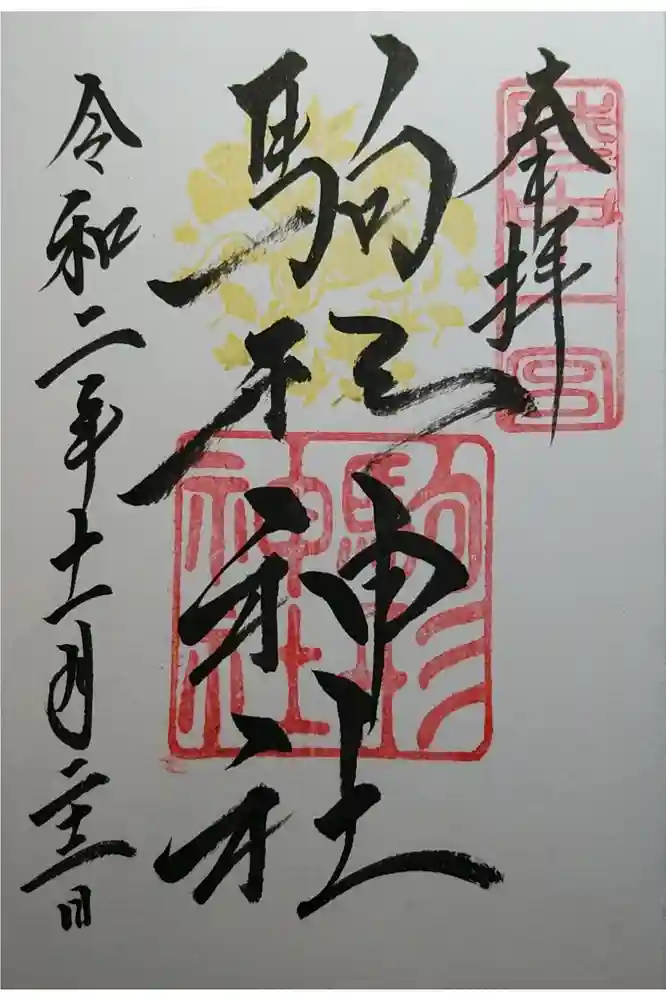 奉拝
陸中一宮
駒形神社
駒形神社
令和二年十一月二十三日